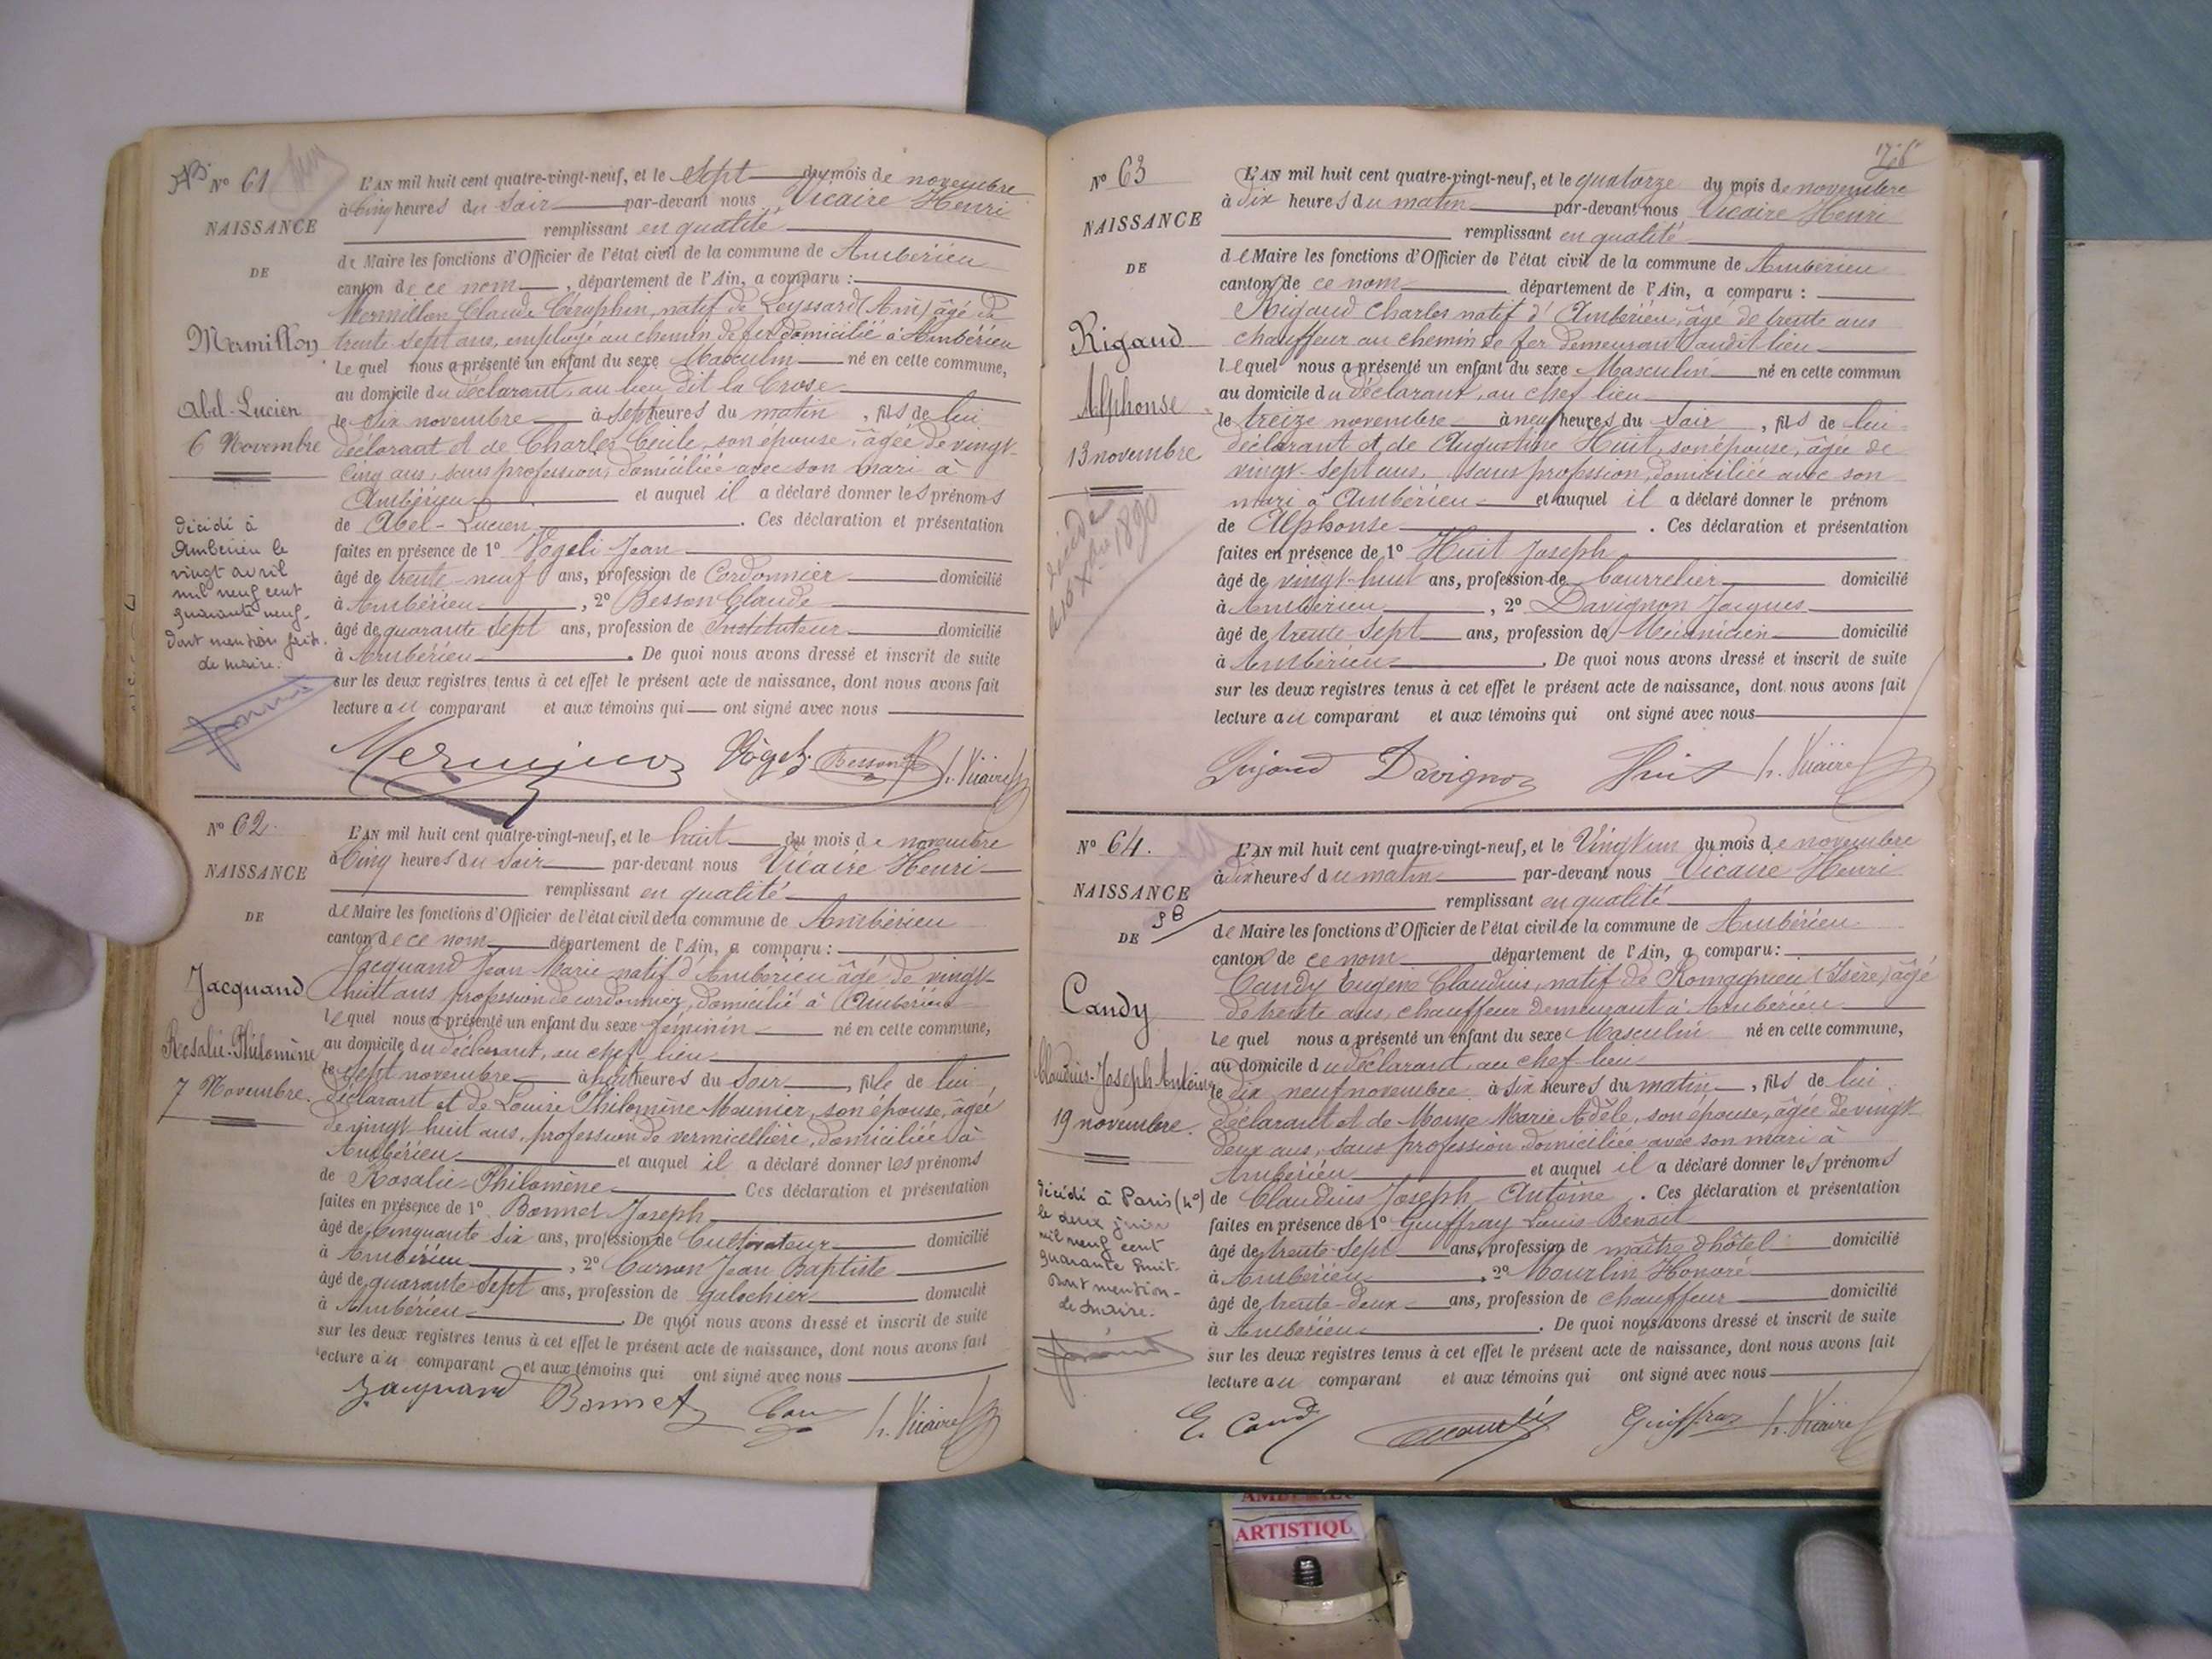 Nº 61
NAISSANCE
DE
Mermillon
Abel-Lucien
6 Novembre
décédé à
Ambérieu le
vingt avril
mil neuf cent
quarante neuf.
dont mention faite.
de maire.
L'AN mil huit cent quatre-vingt-neuf, et le Sept du mois de novembre
à Cinq heures du Soir par-devant nous Vicaire Henri
remplissant en qualité
de Maire les fonctions d'Officier de l'état civil de la commune de Ambérieu
canton de ce nom, département de l'Ain, a comparu :
Mermillon Claude Séraphin, natif de Leyssard (Ain) âgé de
trente sept ans, employé au chemin de fer domicilié à Ambérieu
Lequel nous a présenté un enfant du sexe Masculin né en cette commune,
au domicile du déclarant, au lieu dit la Crose
le Six novembre à sept heures du matin, fils de lui
déclarant et de Charlez Cécile, son épouse, âgée de vingt
cinq ans, sans profession, domiciliée avec son mari à
Ambérieu et auquel il a déclaré donner les prénoms
de Abel-Lucien. Ces déclaration et présentation
faites en présence de 1º Vogeli Jean
âgé de trente-neuf ans, profession de Cordonnier domicilié
à Ambérieu, 2º Besson Claude
âgé de quarante Sept ans, profession de Instituteur domicilié
à Ambérieu. De quoi nous avons dressé et inscrit de suite
sur les deux registres tenus à cet effet le présent acte de naissance, dont nous avons fait
lecture au comparant et aux témoins qui ont signé avec nous
Vögeli Besson h. Vicaire
Nº 62
NAISSANCE
DE
Jacquand
Rosalie-Philomène
7 Novembre.
L'AN mil huit cent quatre-vingt-neuf, et le huit du mois de novembre
à Cinq heures du Soir par-devant nous Vicaire Henri
remplissant en qualité
de Maire les fonctions d'Officier de l'état civil de la commune de Ambérieu
canton de ce nom département de l'Ain, a comparu :
Jacquand Jean Marie natif d'Ambérieu âgé de vingt
huit ans profession de cordonnier, domicilié à Ambérieu
Lequel nous a présenté un enfant du sexe féminin né en cette commune,
au domicile du déclarant, au chef lieu
le sept novembre à huit heures du Soir, fille de lui
déclarant et de Louise Philomène Meunier, son épouse, âgée
de vingt huit ans, profession de vermicellière, domiciliée à
Ambérieu et auquel il a déclaré donner les prénoms
de Rosalie-Philomène Ces déclaration et présentation
faites en présence de 1º Bonnet Joseph
âgé de Cinquante Six ans, profession de Cultivateur domicilié
à Ambérieu, 2º Carron Jean Baptiste
âgé de quarante-Sept ans, profession de galochier domicilié
à Ambérieu. De quoi nous avons dressé et inscrit de suite
sur les deux registres tenus à cet effet le présent acte de naissance, dont nous avons fait
lecture au comparant et aux témoins qui ont signé avec nous
Jacquand Bonnet h. Vicaire
Nº 63
NAISSANCE
DE
Rigaud
Alphonse
13 novembre
décédé
1890
L'AN mil huit cent quatre-vingt-neuf, et le quatorze du mois de novembre
à Dix heures du matin par-devant nous Vicaire Henri
remplissant en qualité
de Maire les fonctions d'Officier de l'état civil de la commune de Ambérieu
canton de ce nom département de l'Ain, a comparu :
Rigaud Charles natif d'Ambérieu, âgé de trente ans
chauffeur au chemin de fer demeurant audit lieu
Lequel nous a présenté un enfant du sexe Masculin né en cette commun
au domicile du déclarant, au chef lieu
le treize novembre à neuf heures du Soir, fils de lui
déclarant et de Augustine Huit, son épouse, âgée de
vingt-Sept ans, sans profession, domiciliée avec son
mari à Ambérieu et auquel il a déclaré donner le prénom
de Alphonse. Ces déclaration et présentation
faites en présence de 1º Huit Joseph
âgé de vingt-huit ans, profession de bourrelier domicilié
à Ambérieu, 2º Davignon Jacques
âgé de trente Sept ans, profession de Mécanicien domicilié
à Ambérieu. De quoi nous avons dressé et inscrit de suite
sur les deux registres tenus à cet effet le présent acte de naissance, dont nous avons fait
lecture au comparant et aux témoins qui ont signé avec nous
Rigaud Davignon Huit h. Vicaire
Nº 64.
NAISSANCE
DE
Candy
Claudius-Joseph-Antoine
19 novembre.
décédé à Paris (4e)
le deux juin
mil neuf cent
quarante huit.
Dont mention-
de maire.
L'AN mil huit cent quatre-vingt-neuf, et le Vingt un du mois de novembre
à dix heures du matin par-devant nous Vicaire Henri
remplissant en qualité
de Maire les fonctions d'Officier de l'état civil de la commune de Ambérieu
canton de ce nom département de l'Ain, a comparu :
Candy Eugène Claudius, natif de Romagnieu (Isère) âgé
de trente ans, chauffeur demeurant à Ambérieu
Lequel nous a présenté un enfant du sexe Masculin né en cette commune,
au domicile du déclarant, au chef-lieu
le dix neuf novembre à six heures du matin, fils de lui
déclarant et de Marie Adèle, son épouse, âgée de vingt
deux ans, sans profession domiciliée avec son mari à
Ambérieu et auquel il a déclaré donner les prénoms
de Claudius Joseph Antoine. Ces déclaration et présentation
faites en présence de 1º Guiffray Louis Benoit
âgé de trente-Sept ans, profession de maître d'hôtel domicilié
à Ambérieu, 2º Mourlin Honoré
âgé de trente-deux ans, profession de chauffeur domicilié
à Ambérieu. De quoi nous avons dressé et inscrit de suite
sur les deux registres tenus à cet effet le présent acte de naissance, dont nous avons fait
lecture au comparant et aux témoins qui ont signé avec nous
E. Candy Guiffray h. Vicaire
ARTISTIQU